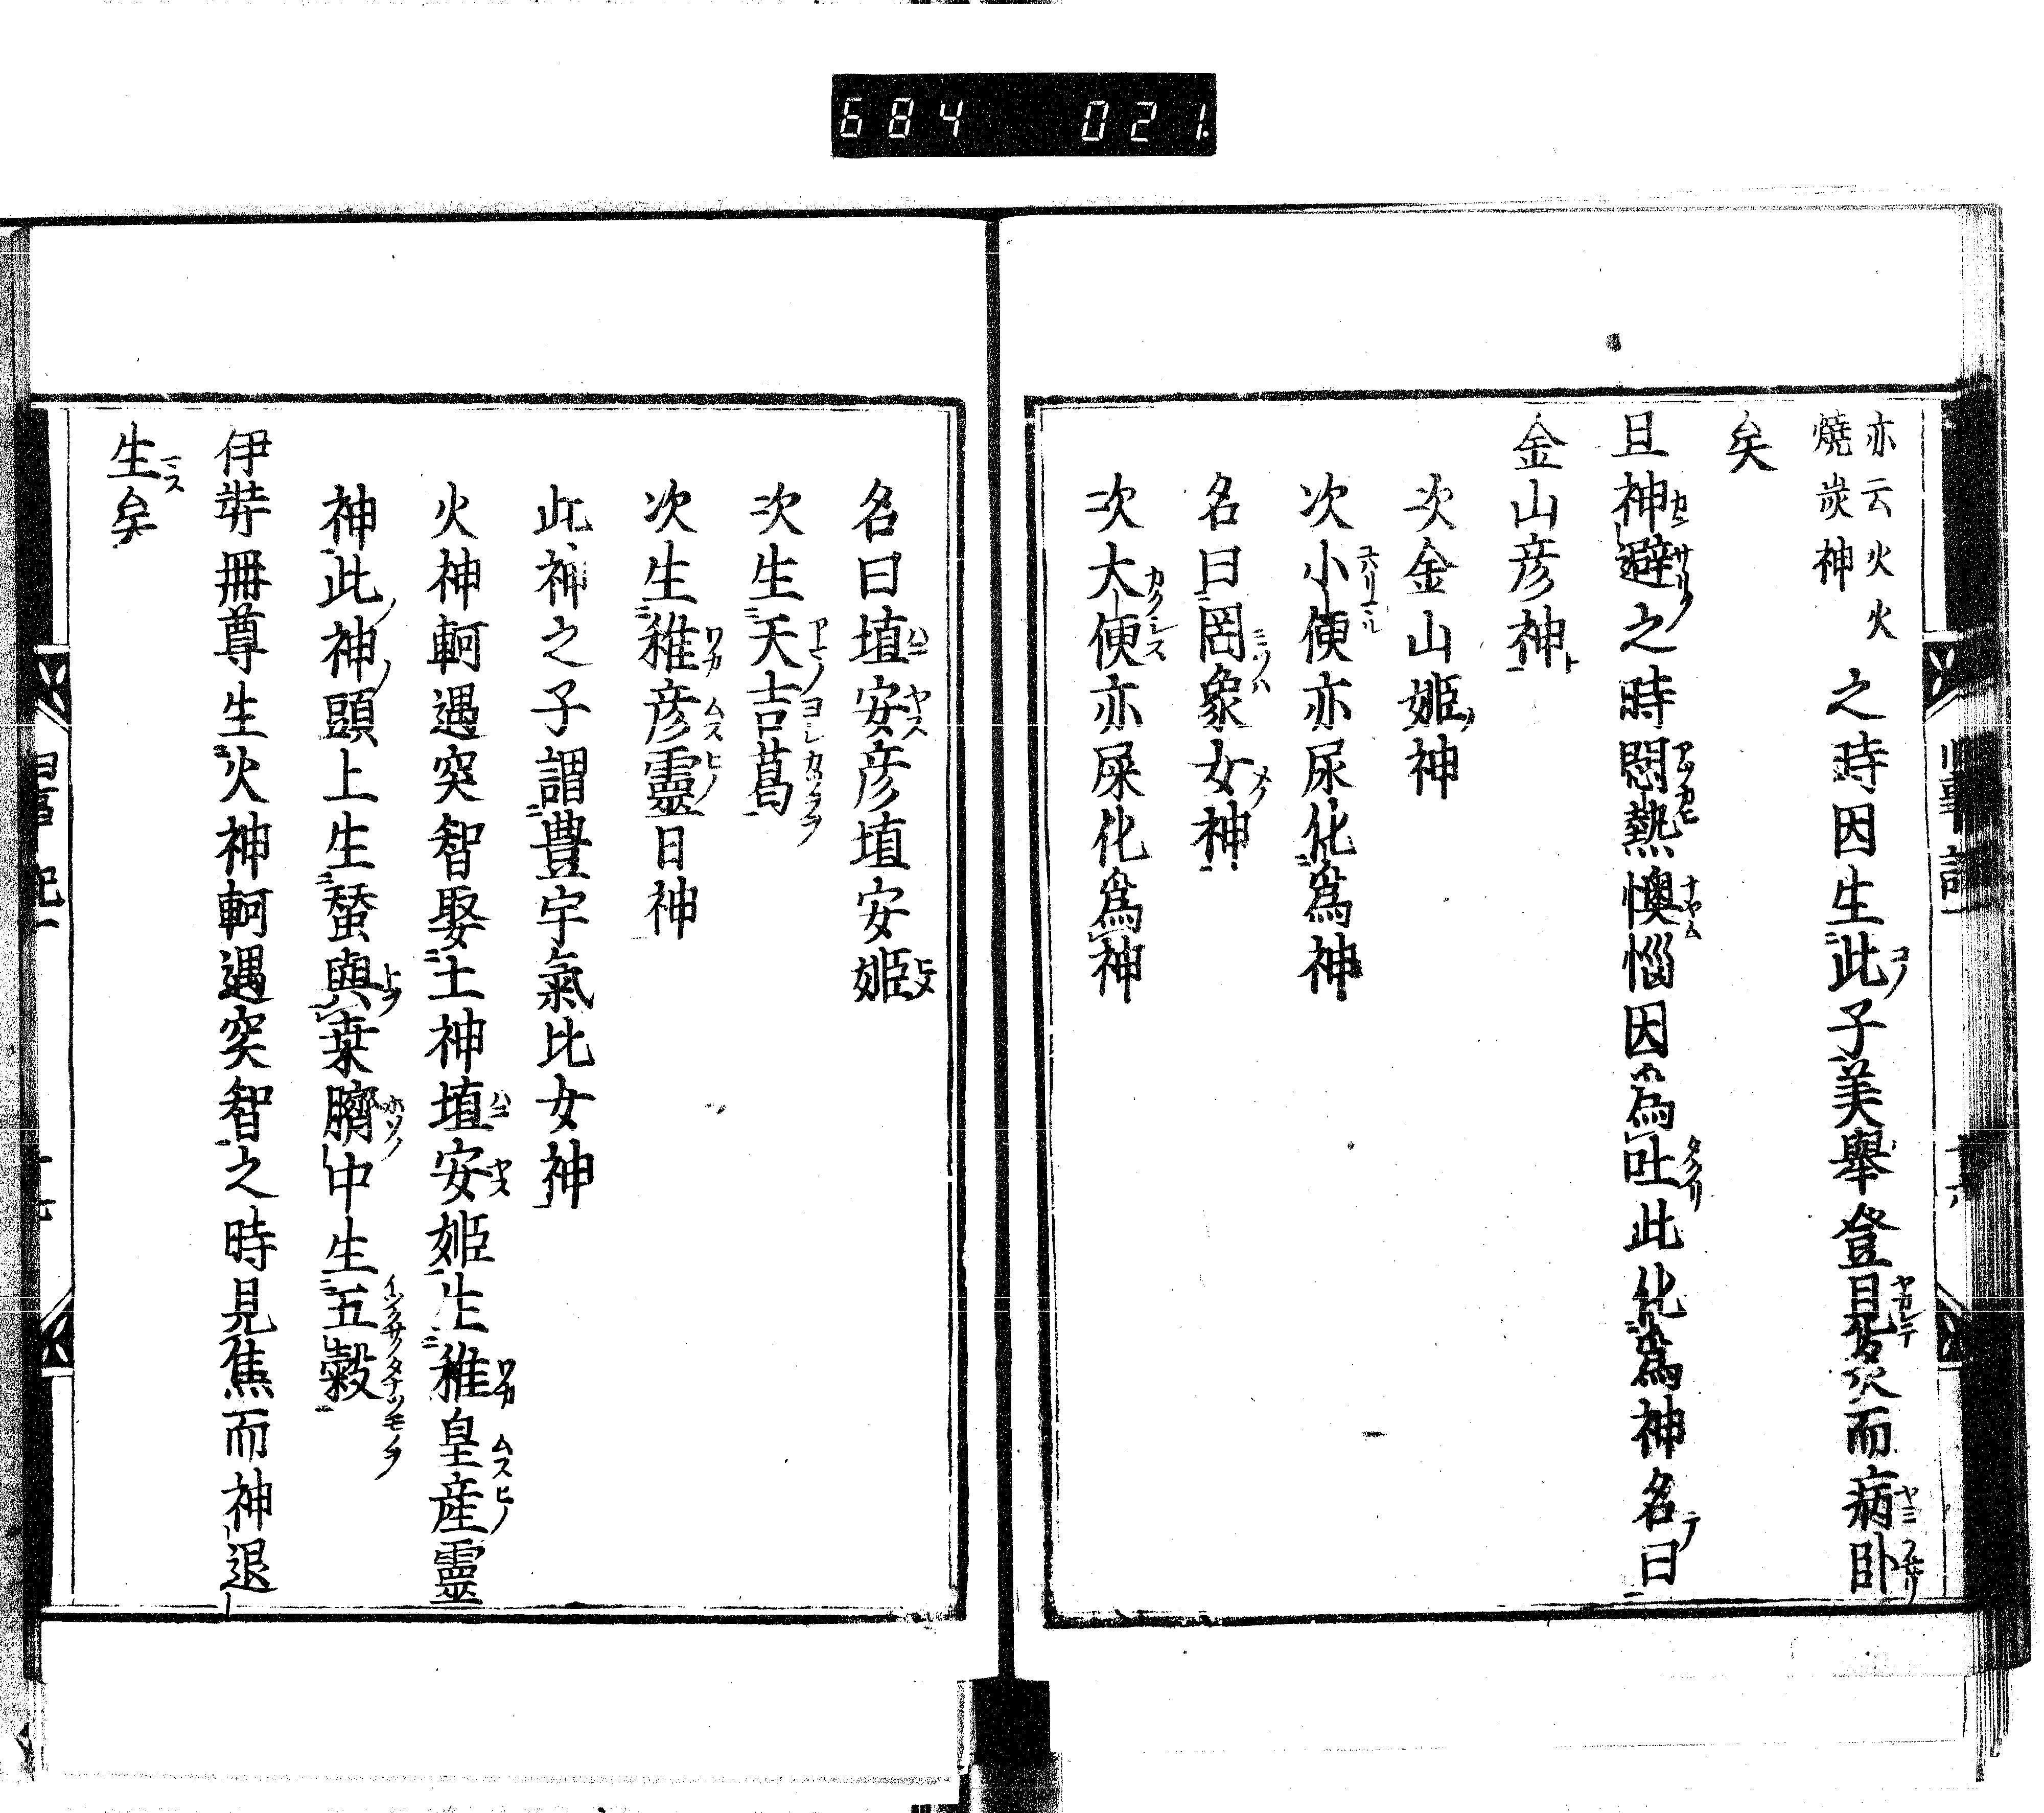 684 021.
亦云火火
燒炭神
之時因生此子美舉登見炙而病臥
矣
且神避之時悶熱懊惱因為吐此化為神名曰
金山彦神
次金山姬神
次小便亦尿化爲神
名曰罔象女神
次大便亦屎化爲神
名曰埴安彦埴安姬
次生天吉葛
次生稚彦靈日神
此神之子謂豐宇氣比女神
火神軻遇突智娶土神埴安姬生稚皇産靈
神此神頭上生蠶與桒臍中生五穀
伊弉冊尊生火神軻遇突智之時見焦而神退
生矣